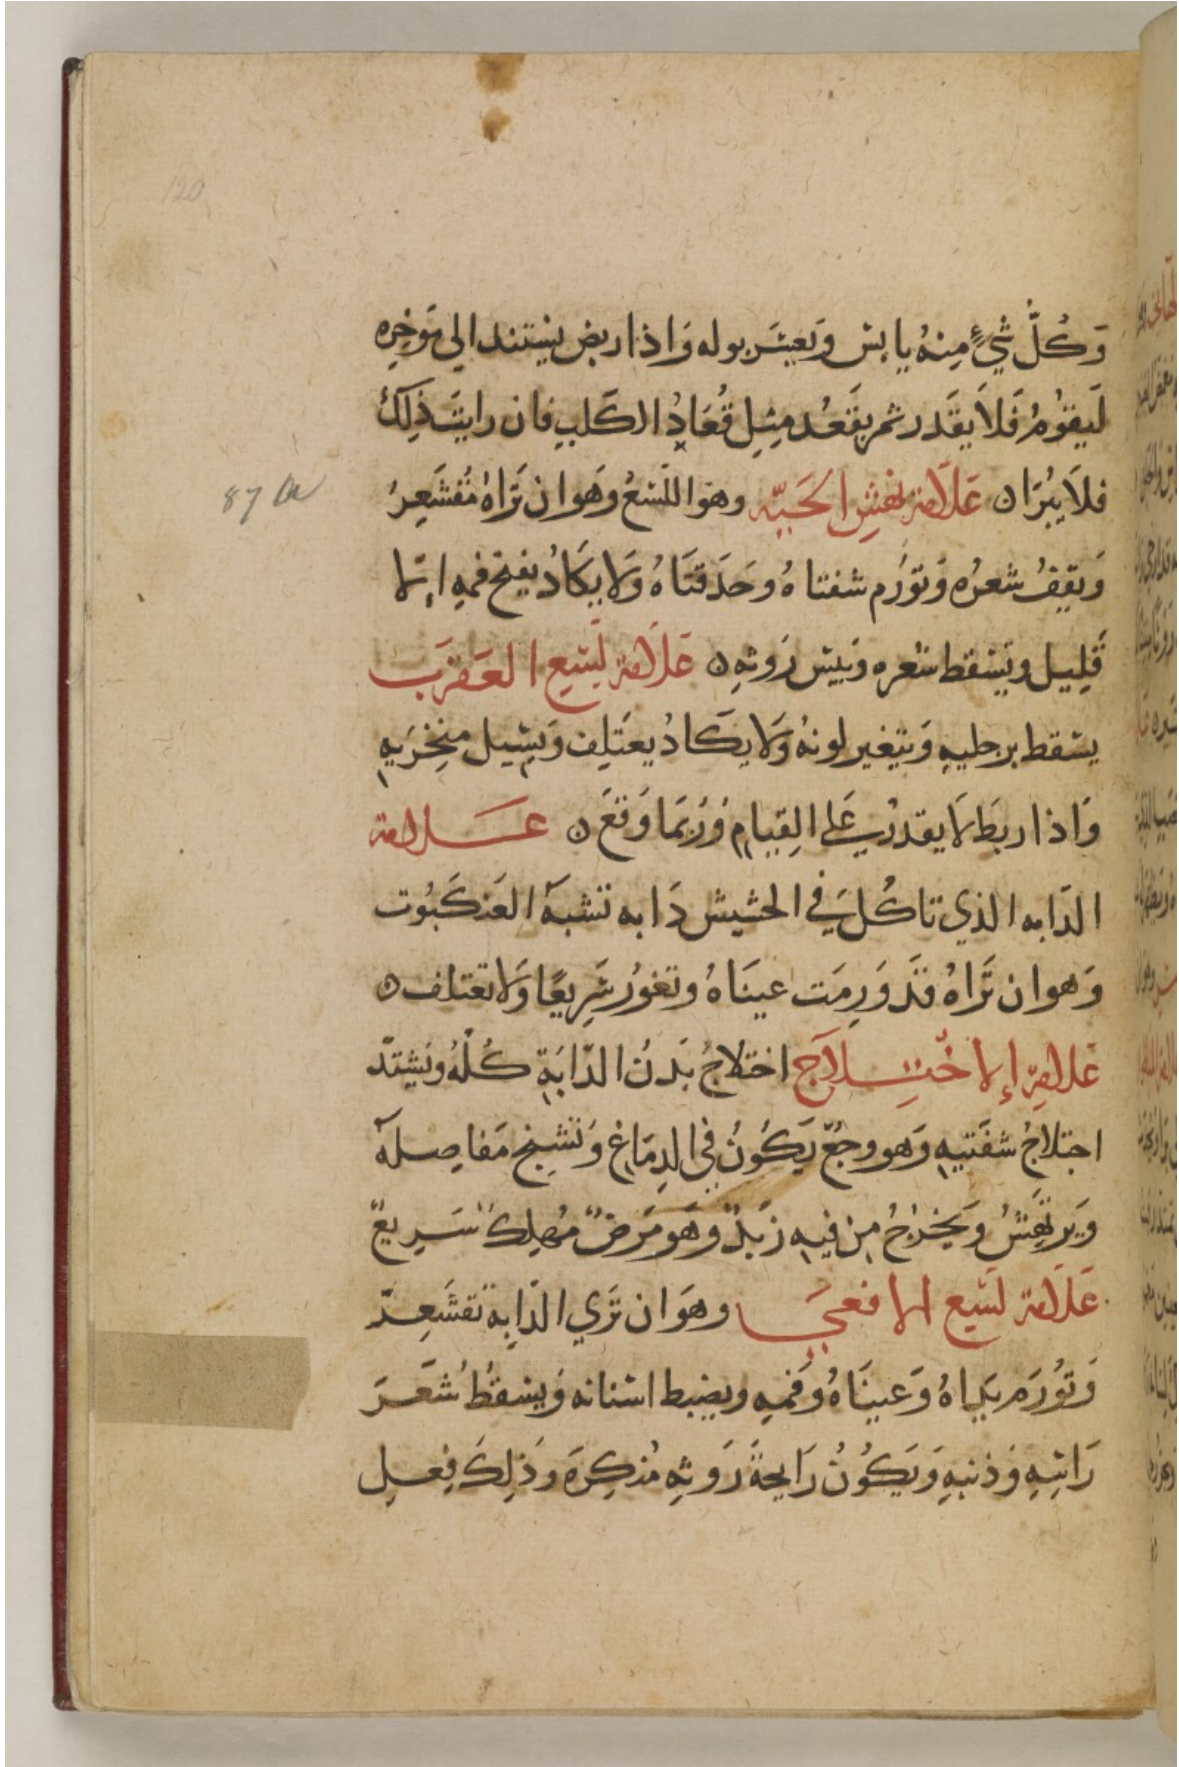 120
وَكُلُّ شَيْءٍ مِنهُ يابس وَيعسَر بوله وَاذا ربض يستند الي مَوخِره
لَيقوُمُ فَلاَ يقَدر ثم يقَعُد مِثِل قُعَادُ الكَلبِ فان رايتَ ذلِكَ
فلاَ يَبُرَا ن عَلاَمة نهَشِ الحَيّه وهَوا للَسع وَهَوا ن تَراهُ مُقشَعِرُ
وَيقِفُ شعرُه وَتوَرُم شفتاهُ وحَدَقتَاهُ وَلا يكَادُ يَفتح فمهِ اِلا
قَلِيل ويَسَقط شعره وَيبيس رَوثهِ ن عَلاَمة لَسعِ العَقرَب
يسَقط برجليهِ وَيتغير لونهُ وَلا يكَادُ يعتَلِف وَيسِيل مِنخِرَيهِ
وَاذا ربَط لا يقدرُ علي القِيامِ وَرُبَمَا وَقعَ ن عَــلامة
الدَابه الذي تاكُلَ في الحشيش دَابه تشبهَ العَنكَبُوت
وَهوان تَراهُ قَد وَرِمَت عينَاهُ وتغوُر سَرِيعًا وَلا تعتلف ن
عَلامةِ إلاختِــلاَج اختلاجُ بَدنُ الدّابَةِ كُلّهُ وَيشِتدّ
اختلاجُ شفَتيهِ وَهو وجعٌ يَكوُنُ في الدِمَاغِ وَتشَنج مَفاصِلهَ
وَيرتهَشُ وَيخرُجُ مِن فيهِ زَبَدٌ وَهَو مَرَضٌ مُهلِكٌ سَرِيعٌ
عَلاَمة لَسع الافعَي وهَوَان تَري الدَابة تقشَعِرّ
وَتوُرَم يدَاهُ وَعينَاهُ وَفمهِ ويضبط اسنانه وَيسقطُ شَعَرَ
رَاسِهِ وَذنبهِ وَيَكوُنُ رَايحةَ رَوثهِ مُنكِرَه وَذلِكَ فِعلِ